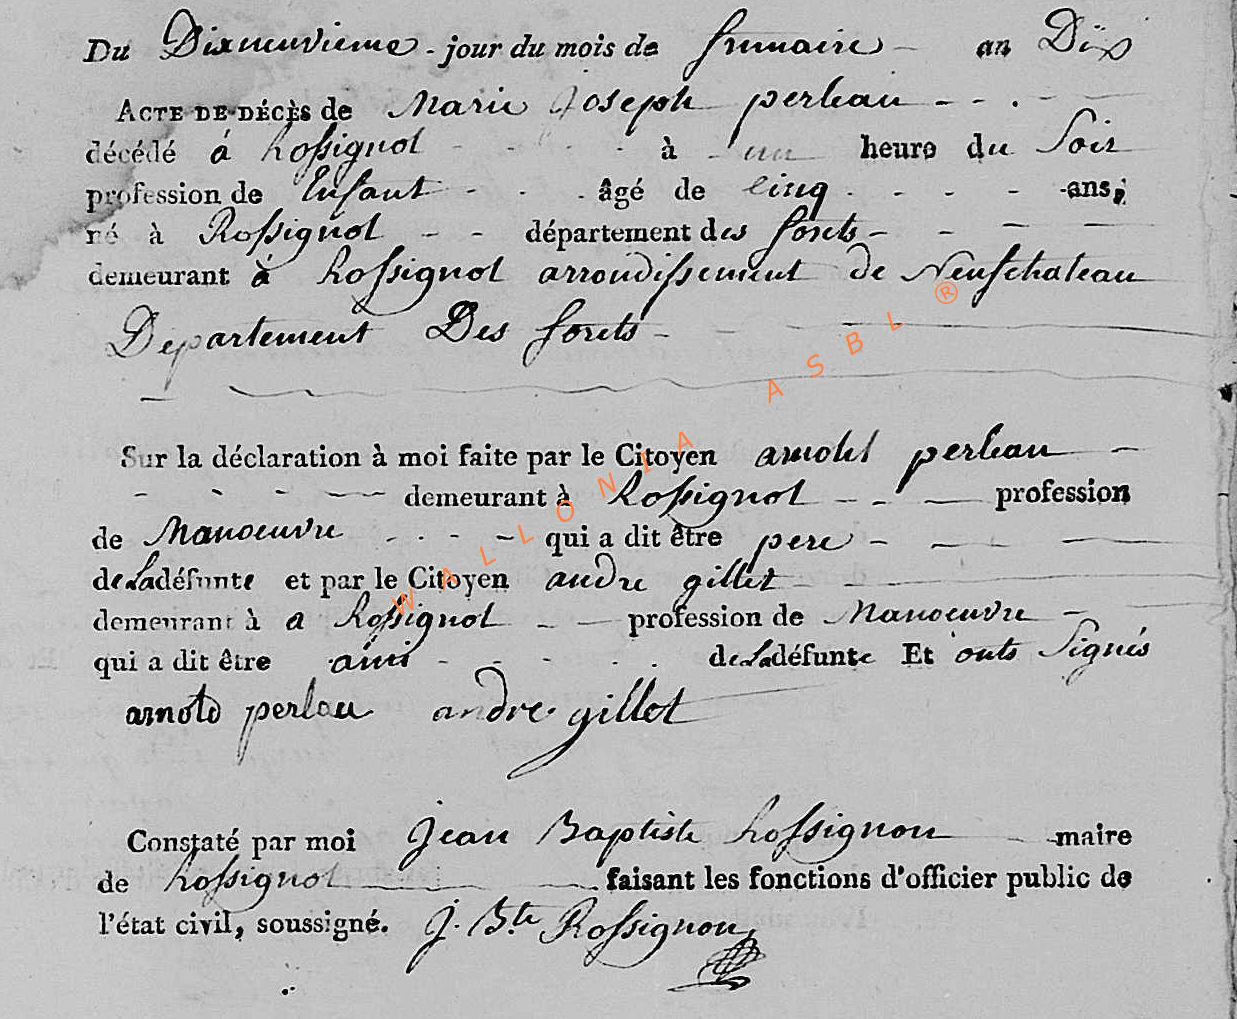 Du Dixneuvieme - jour du mois de frimaire - an Dix
ACTE DE DÉCÈS de Marie Joseph perleau - - . - -
décédé á Rossignol - - - - - à - un heure du Soir
profession de Enfant - - . âgé de cinq . - - - -ans,
né à Rossignol - - département des forets - - - -
demeurant à Rossignol arrondissement de Neufchateau
Departement Des forets -
Sur la déclaration à moi faite par le Citoyen arnold perleau -
- - - - demeurant à Rossignol - - - profession
de Manoeuvre - . - - qui a dit être pere - - - -
de La défunte et par le Citoyen andre gillet
demeurant à a Rossignol - - profession de Manoeuvre -
qui a dit être ami - - - - . . de La défunte Et onts Signés
arnold perlau andre gillet
Constaté par moi Jean Baptiste Rossignon - maire
de Rossignol faisant les fonctions d'officier public de
l'état civil, soussigné. J. B.te Rossignon
WALLONIA ASBL ®